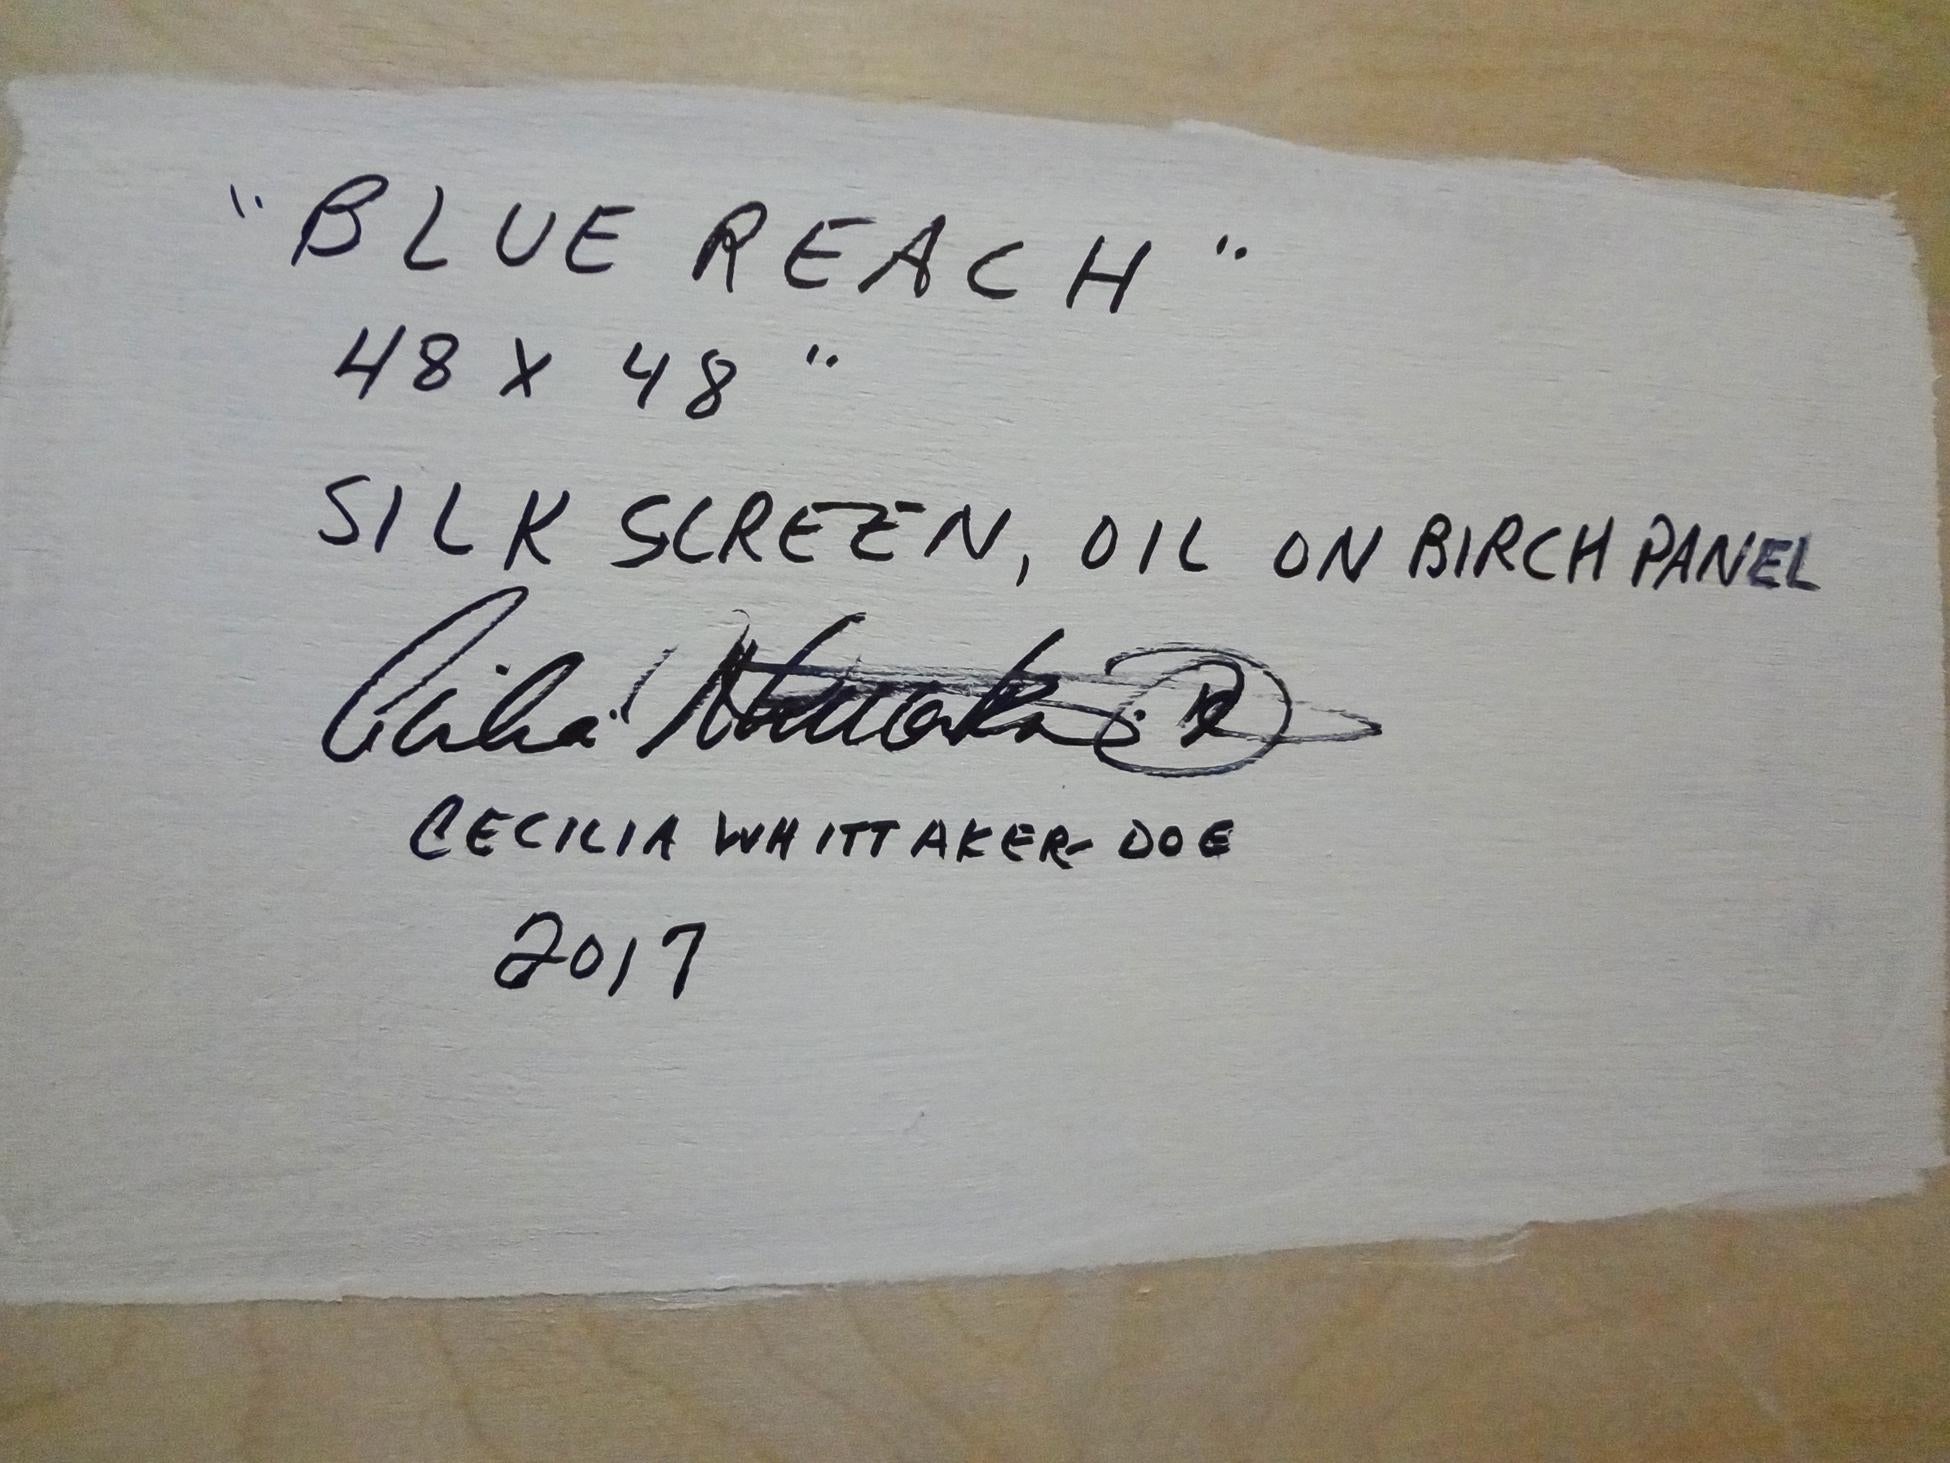 "BLUE REACH"
48 X 48"
SILK SCREEN, OIL ON BIRCH PANEL
Cecilia
CECILIA WHITTAKER-DOE
2017